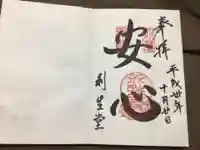 奉拝
平成卅年
十月廿日
安心
利生堂